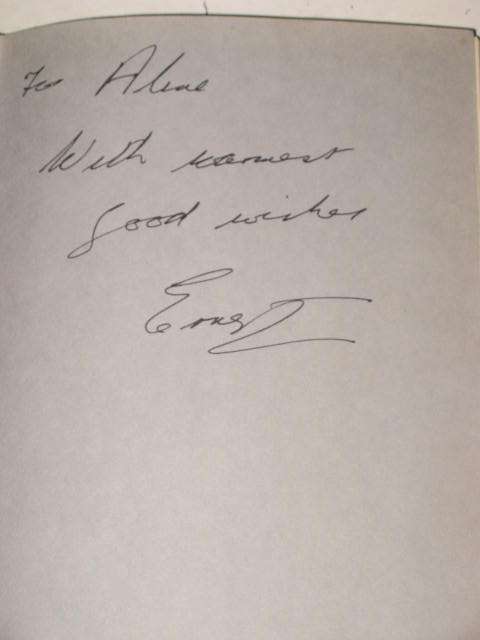 For Aline
With warmest
good wishes
Ernest